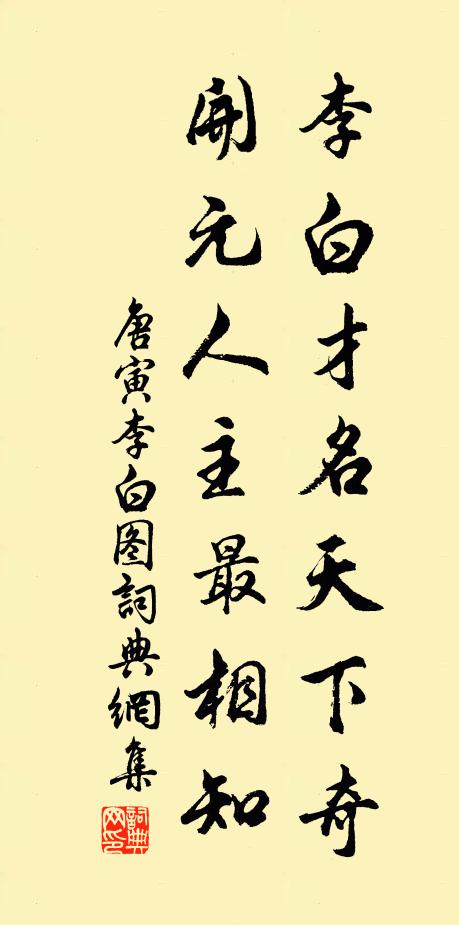 李白才名天下奇
開元人主最相知
唐寅李白图詞典網集
詞典网印